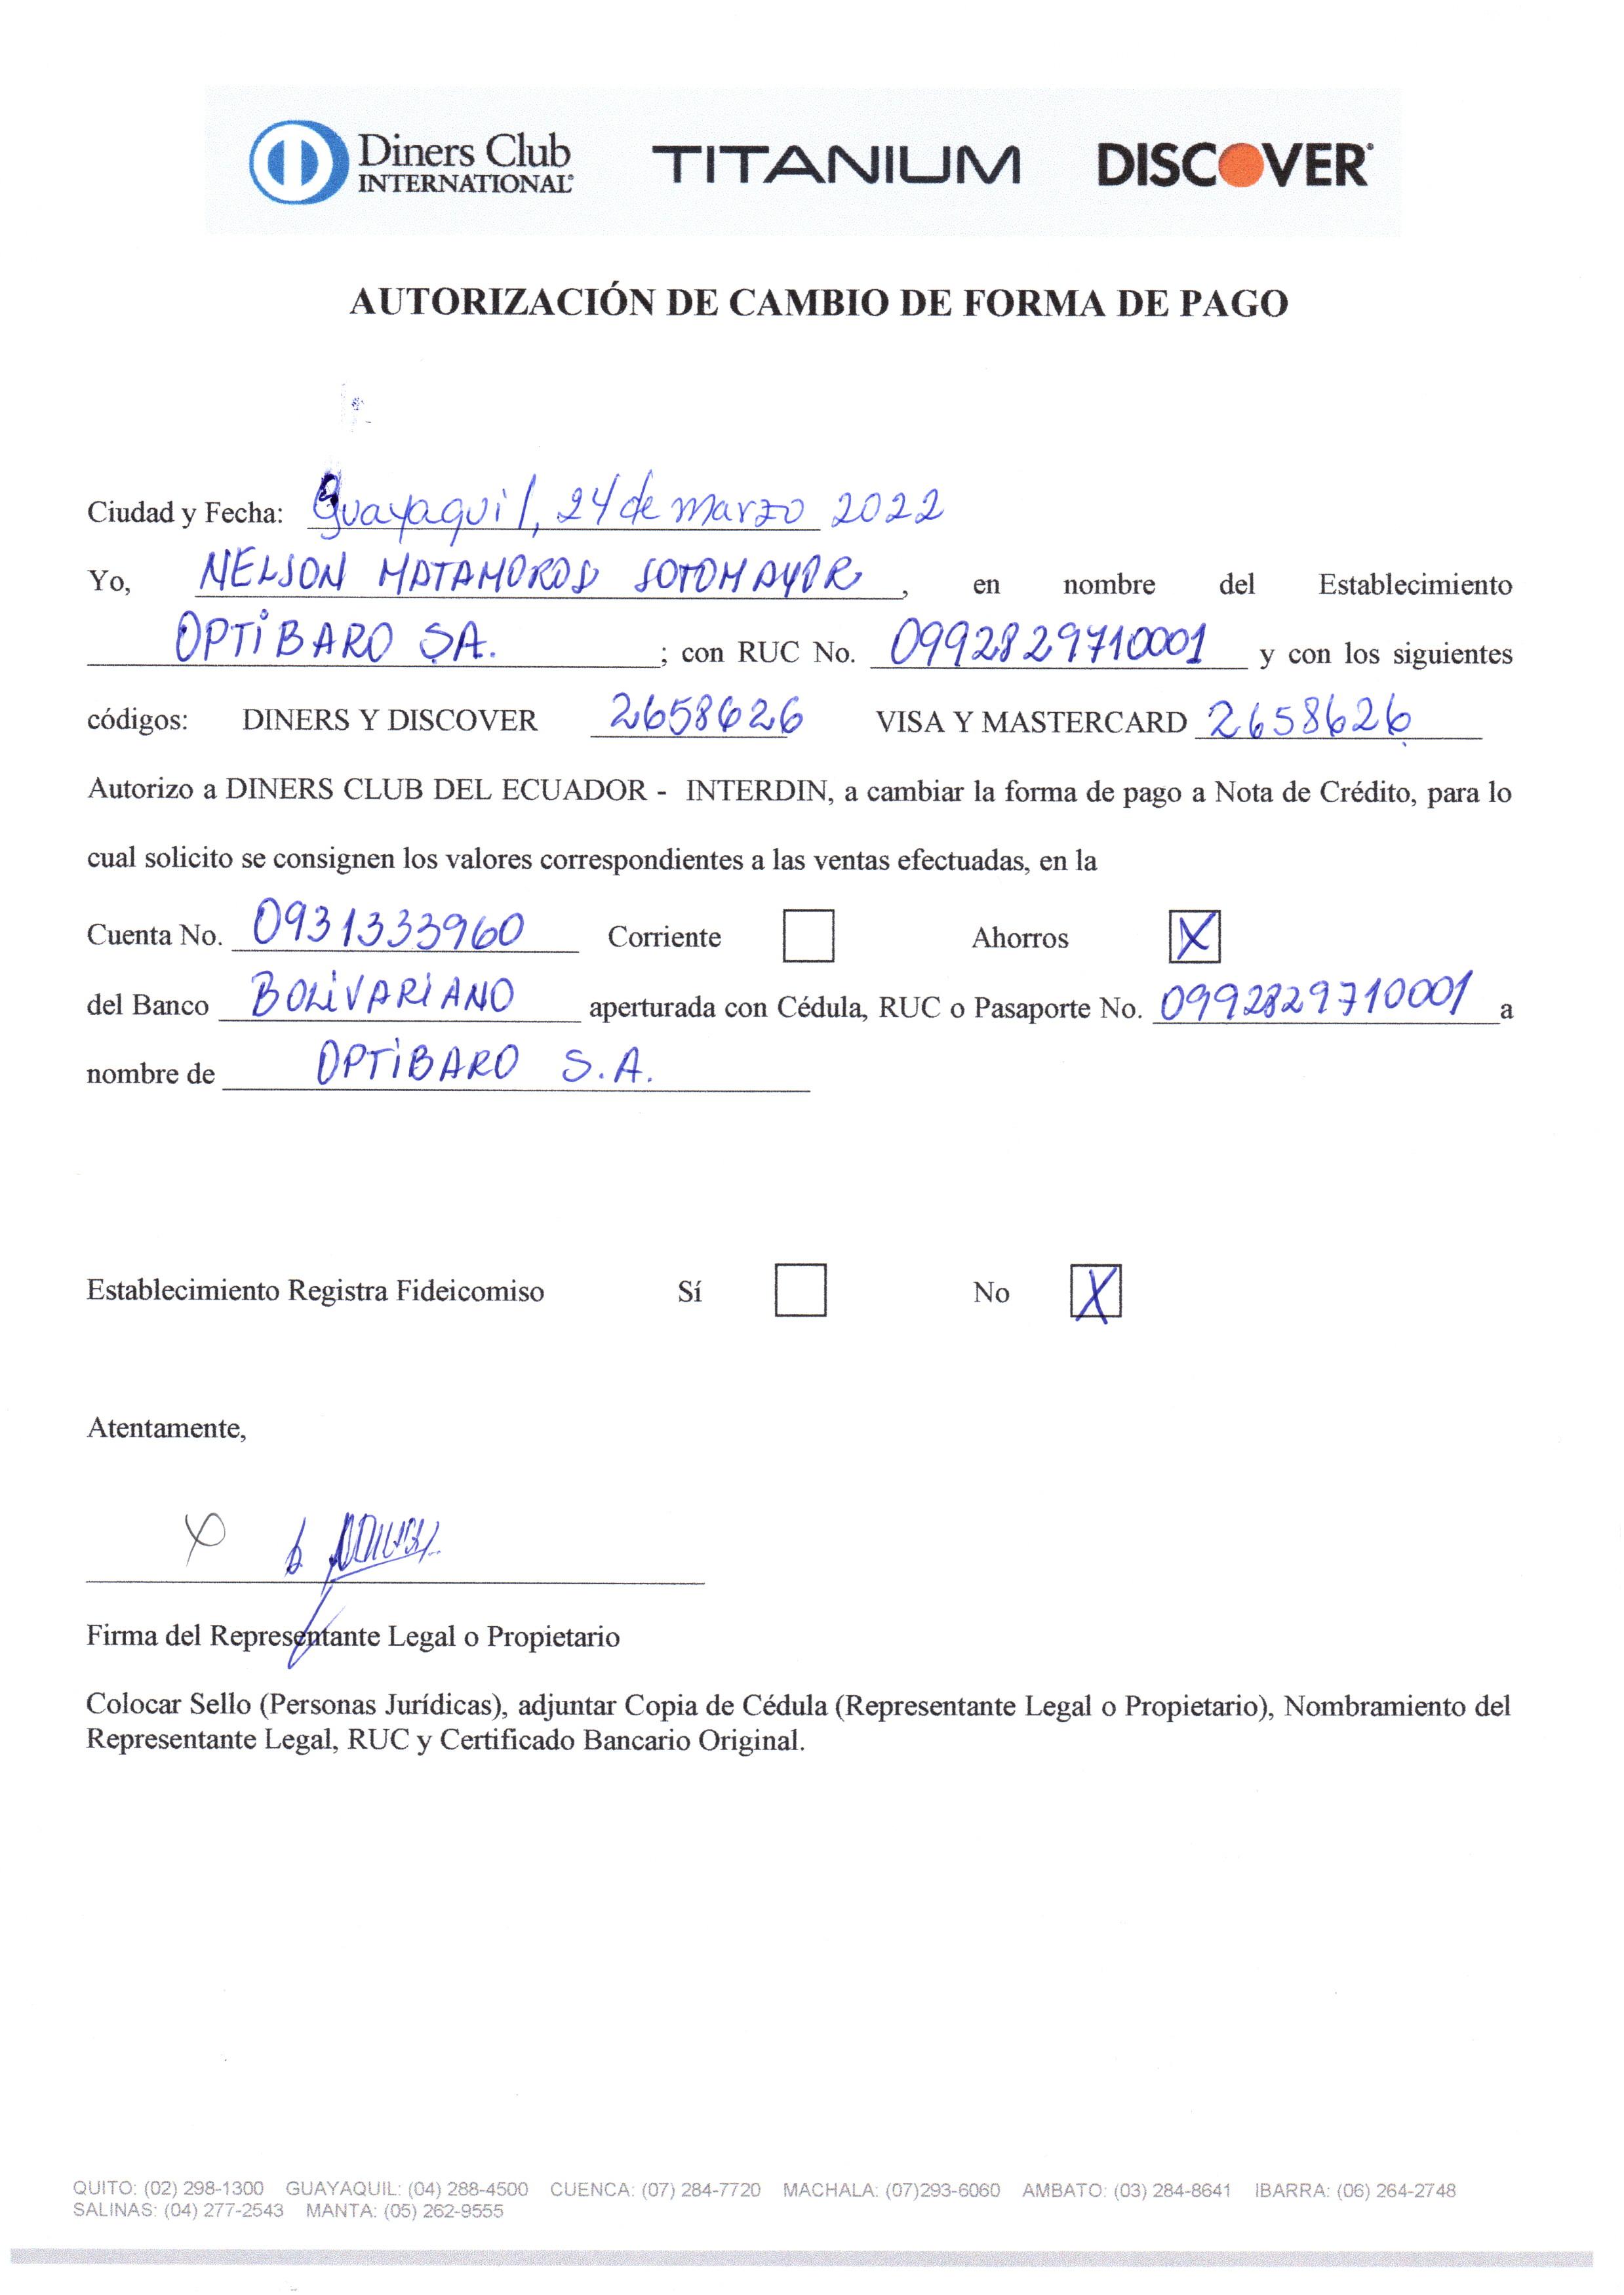 Diners Club INTERNATIONAL® TITANIUM DISCOVER®
AUTORIZACIÓN DE CAMBIO DE FORMA DE PAGO
Ciudad y Fecha: Guayaquil, 24 de marzo 2022
Yo, NELSON MATAMOROS SOTOMAYOR, en nombre del Establecimiento
OPTIBARO SA. ; con RUC No. 0992829710001 y con los siguientes
códigos: DINERS Y DISCOVER 2658626 VISA Y MASTERCARD 2658626
Autorizo a DINERS CLUB DEL ECUADOR - INTERDIN, a cambiar la forma de pago a Nota de Crédito, para lo
cual solicito se consignen los valores correspondientes a las ventas efectuadas, en la
Cuenta No. 0931333960 Corriente Ahorros X
del Banco BOLIVARIANO aperturada con Cédula, RUC o Pasaporte No. 0992829710001 a
nombre de OPTIBARO S.A.
Establecimiento Registra Fideicomiso Sí No X
Atentamente,
Firma del Representante Legal o Propietario
Colocar Sello (Personas Jurídicas), adjuntar Copia de Cédula (Representante Legal o Propietario), Nombramiento del
Representante Legal, RUC y Certificado Bancario Original.
QUITO: (02) 298-1300 GUAYAQUIL: (04) 288-4500 CUENCA: (07) 284-7720 MACHALA: (07)293-6060 AMBATO: (03) 284-8641 IBARRA: (06) 264-2748
SALINAS: (04) 277-2543 MANTA: (05) 262-9555